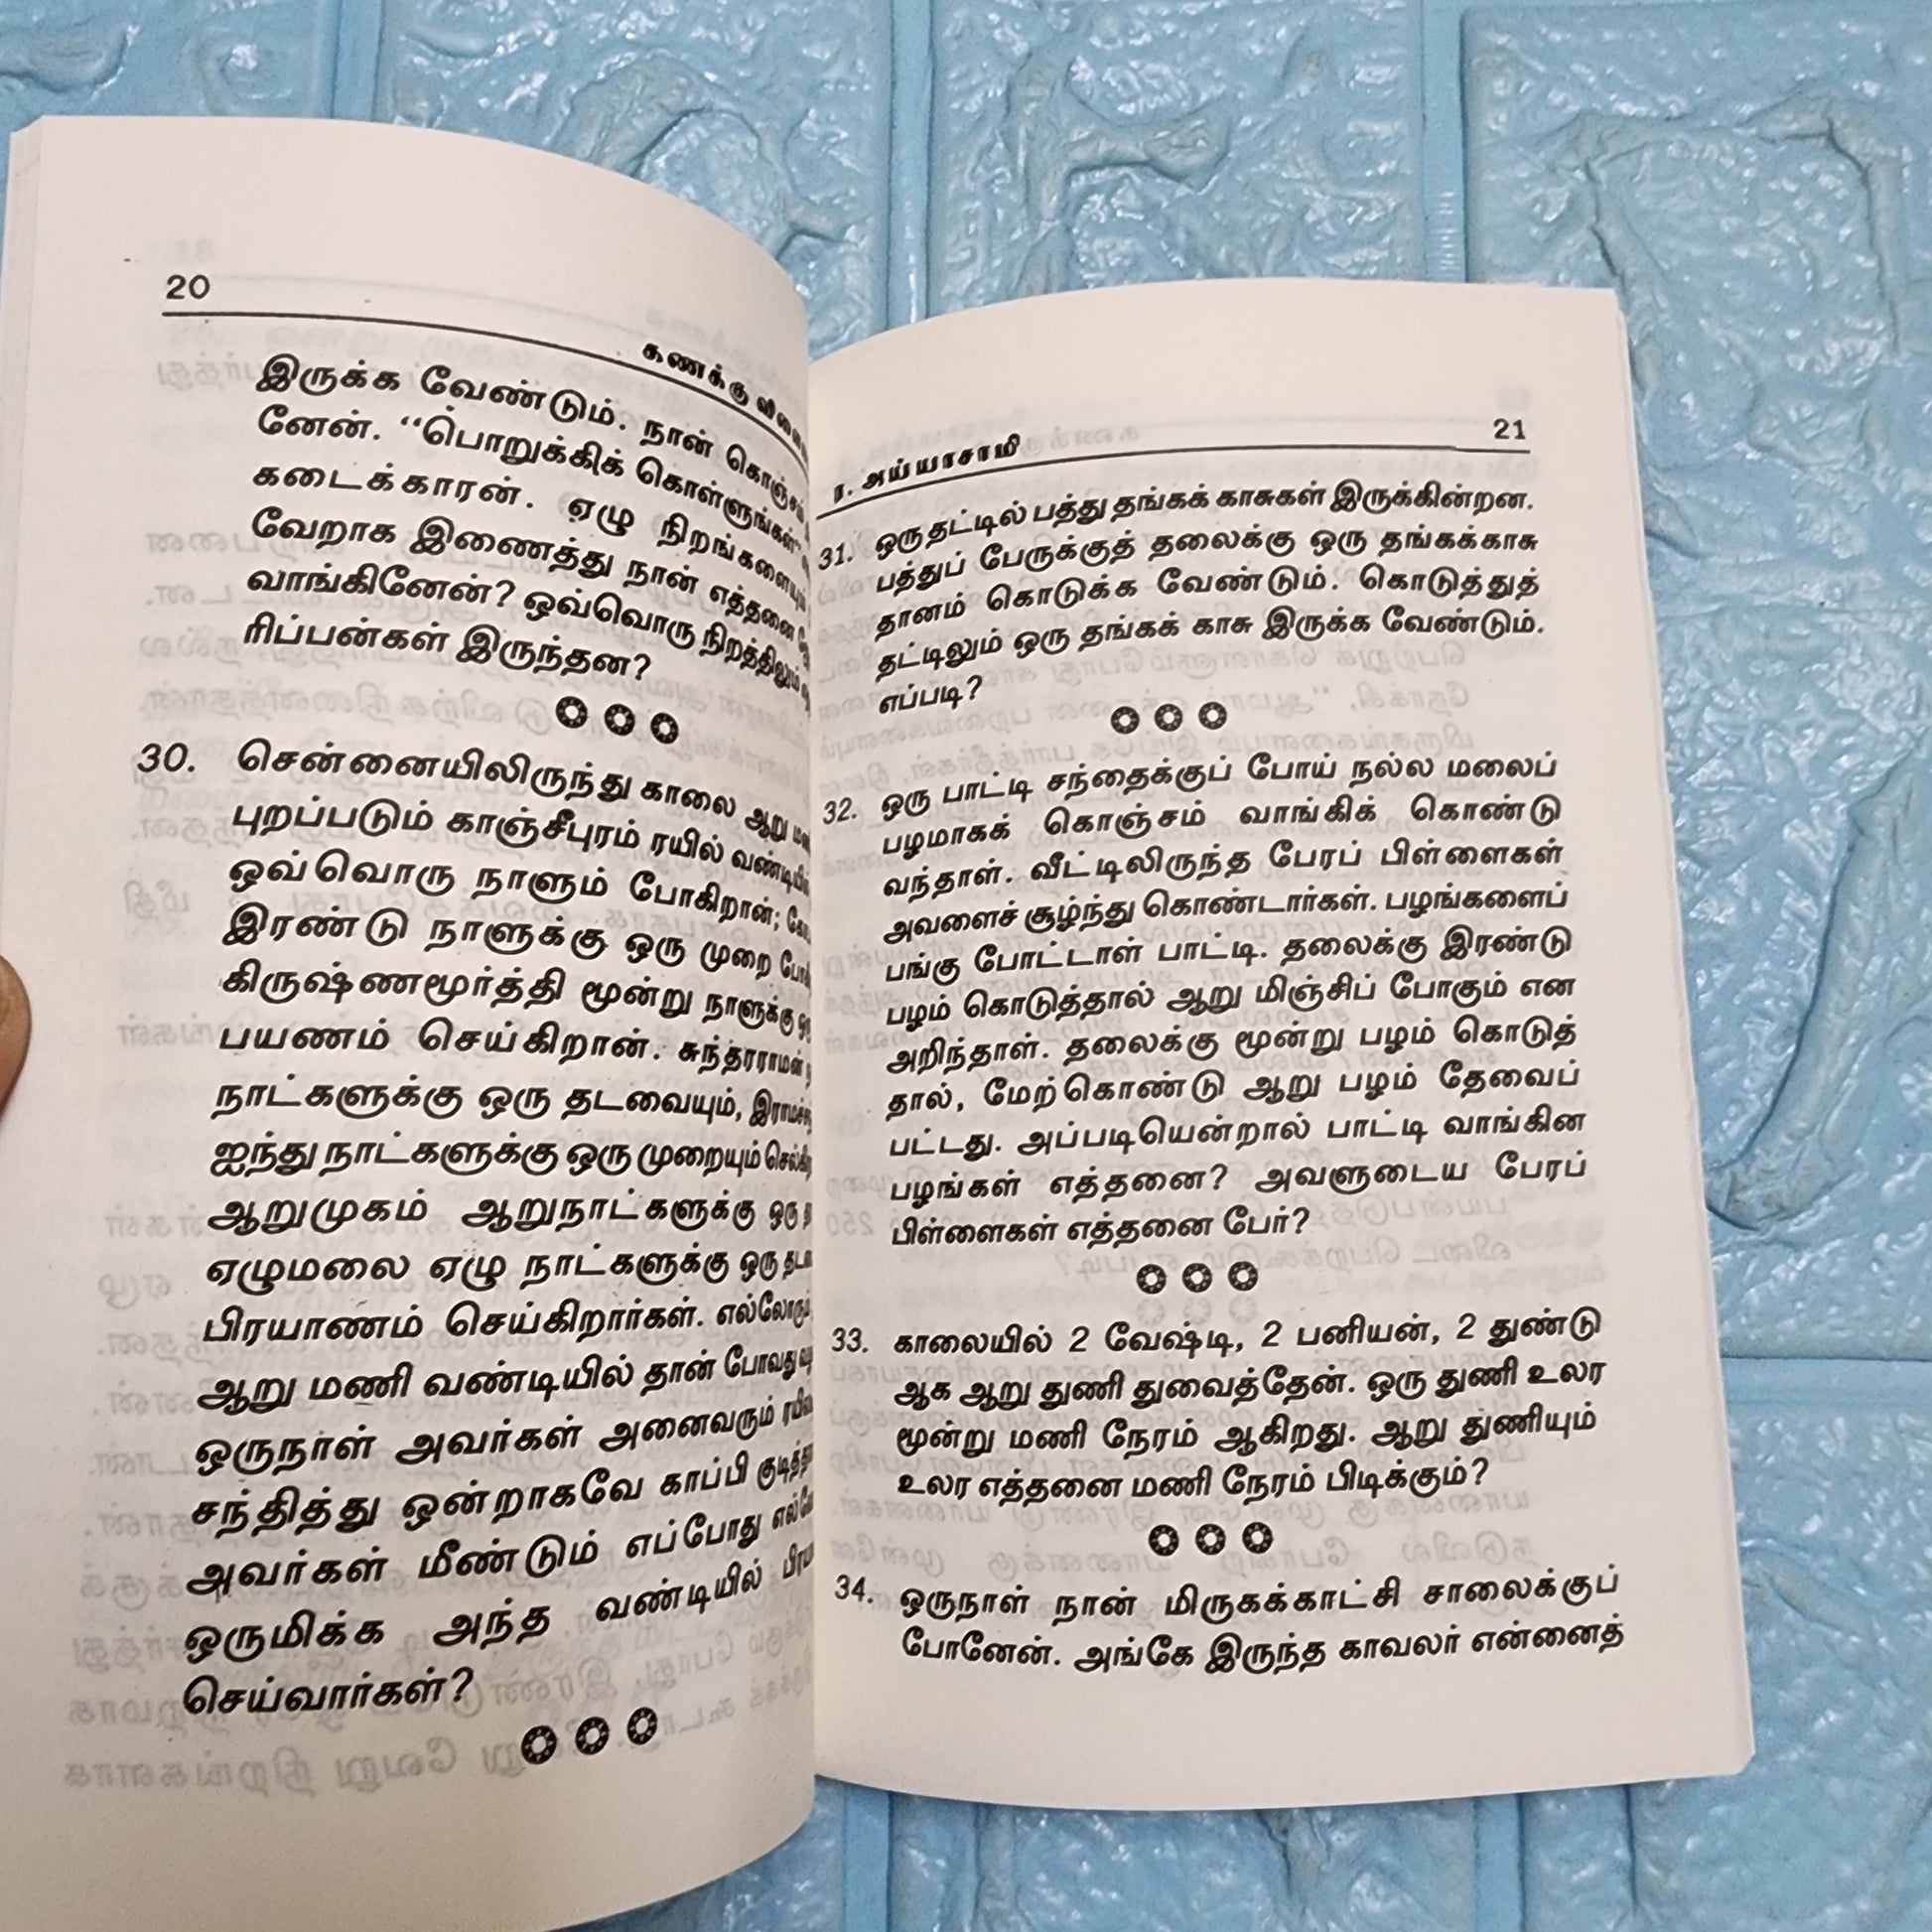 20
கணக்கு
இருக்க வேண்டும். நான் கொஞ்சம்
னேன். “பொறுக்கிக் கொள்ளுங்கள்”
கடைக்காரன். ஏழு நிறங்களையும்
வேறாக இணைத்து நான் எத்தனை
வாங்கினேன்? ஒவ்வொரு நிறத்திலும்
ரிப்பன்கள் இருந்தன?
30. சென்னையிலிருந்து காலை ஆறு
புறப்படும் காஞ்சீபுரம் ரயில்
ஒவ்வொரு நாளும் போகிறான்;
இரண்டு நாளுக்கு ஒரு முறை
கிருஷ்ணமூர்த்தி மூன்று நாளுக்கு
பயணம் செய்கிறான். சுந்தரராமன்
நாட்களுக்கு ஒரு தடவையும்,
ஐந்து நாட்களுக்கு ஒரு முறையும்
ஆறுமுகம் ஆறுநாட்களுக்கு ஒரு
ஏழுமலை ஏழு நாட்களுக்கு ஒரு
பிரயாணம் செய்கிறார்கள்.
ஆறு மணி வண்டியில் தான் போவது
ஒருநாள் அவர்கள் அனைவரும்
சந்தித்து ஒன்றாகவே காப்பி
அவர்கள் மீண்டும் எப்போது
ஒருமிக்க அந்த வண்டியில்
செய்வார்கள்?
ர. அய்யாசாமி 21
31. ஒரு தட்டில் பத்து தங்கக் காசுகள் இருக்கின்றன.
பத்துப் பேருக்குத் தலைக்கு ஒரு தங்கக்காசு
தானம் கொடுக்க வேண்டும். கொடுத்துத்
தட்டிலும் ஒரு தங்கக் காசு இருக்க வேண்டும்.
எப்படி?
32. ஒரு பாட்டி சந்தைக்குப் போய் நல்ல மலைப்
பழமாகக் கொஞ்சம் வாங்கிக் கொண்டு
வந்தாள். வீட்டிலிருந்த பேரப் பிள்ளைகள்
அவளைச் சூழ்ந்து கொண்டார்கள். பழங்களைப்
பங்கு போட்டாள் பாட்டி. தலைக்கு இரண்டு
பழம் கொடுத்தால் ஆறு மிஞ்சிப் போகும் என
அறிந்தாள். தலைக்கு மூன்று பழம் கொடுத்
தால், மேற்கொண்டு ஆறு பழம் தேவைப்
பட்டது. அப்படியென்றால் பாட்டி வாங்கின
பழங்கள் எத்தனை? அவளுடைய பேரப்
பிள்ளைகள் எத்தனை பேர்?
33. காலையில் 2 வேஷ்டி, 2 பனியன், 2 துண்டு
ஆக ஆறு துணி துவைத்தேன். ஒரு துணி உலர
மூன்று மணி நேரம் ஆகிறது. ஆறு துணியும்
உலர எத்தனை மணி நேரம் பிடிக்கும்?
34. ஒருநாள் நான் மிருகக்காட்சி சாலைக்குப்
போனேன். அங்கே இருந்த காவலர் என்னைத்